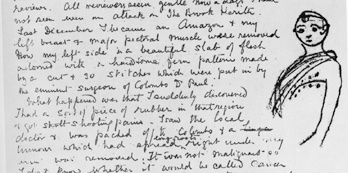 reviews. All reviewers seem gentle now a days
not seen even an attack on The
Last December I became an Amazon & my
left breast & major pectoral muscle were removed
Now my left side is a beautiful slab of flesh
adorned with a handsome fern pattern made
by a cut & 30 stitches which were put in by
the eminent surgeon of Colombo Dr Paul.
What happened was that I suddenly discovered
I had a sort of piece of rubber in that region
& got shooting pains. I saw the local
doctor & was packed off to Colombo & a
tumour which had spread right under my
was removed. It was not malignant
I don't know whether it would be called Cancer